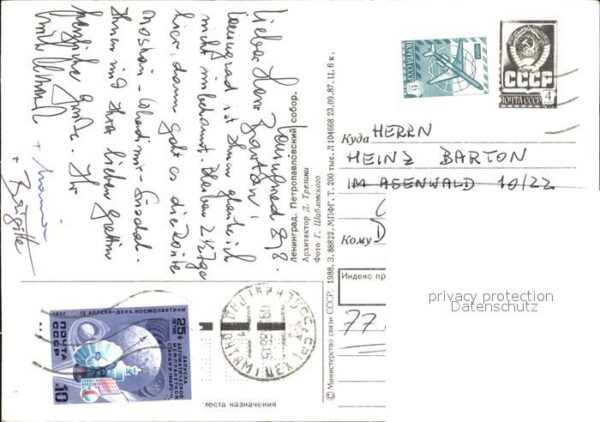 Leningrad 8/8.
Lieber Herr Barton!
Leningrad ist Ihnen gleich
nicht unbekannt. Bleiben 2 1/2 Tage
hier, dann geht es die Route
Moskau - Wladimir - Susdal.
Ihnen und Ihrer lieben Gattin
herzliche Grüße. Ihr
+
+ Brigitte
Ленинград. Петропавловский собор.
Архитектор Д. Трезини
Фото Г. Шабловского
© Министерство связи СССР. 1988. З. 88822. МПФГ. Т. 200 тыс. Л 104668 23.09.87. Ц. 6 к.
ПОЧТА СССР
6
СССР
ПОЧТА СССР 4
Куда HERRN
HEINZ BARTON
IM ASENWALD 10/22
Кому D
Индекс пр
77
места назначения
1987 12 АПРЕЛЯ-ДЕНЬ КОСМОНАВТИКИ
25 ЛЕТ
ЗАПУСКА
АВТОМАТИЧЕСКОЙ
МЕЖПЛАНЕТНОЙ
СТАНЦИИ «МАРС-1»
ПОЧТА
СССР
10
privacy protection
Datenschutz